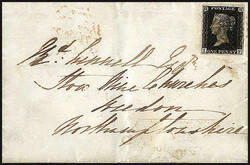 POSTAGE
ONE PENNY
Esqr
Stow Nine Churches
Weedon
Northamptonshire